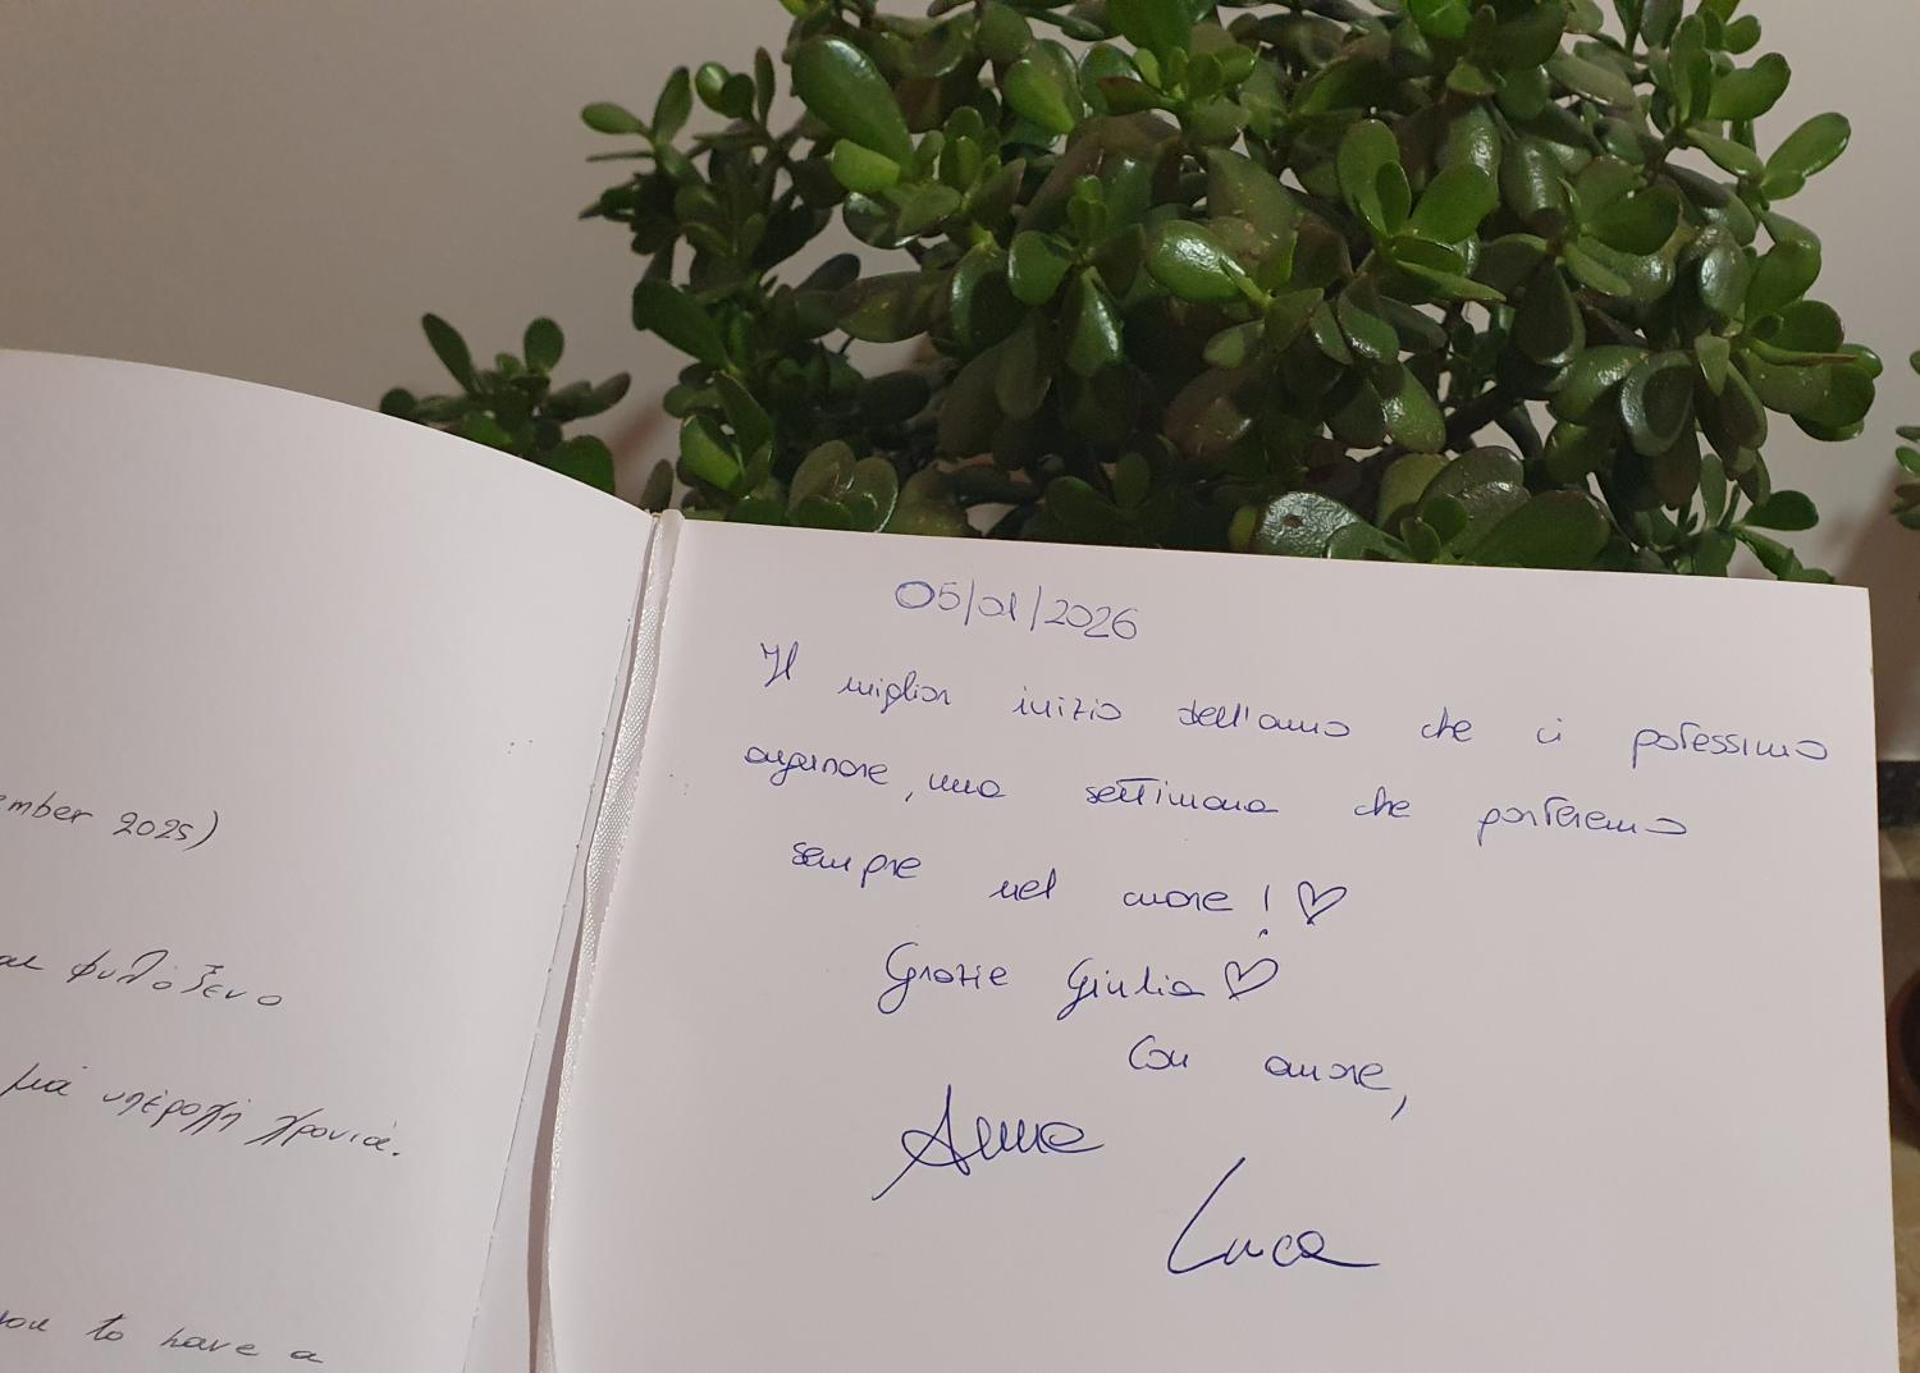 ember 2025)
φυλόξενο
μιά υπέροχη χρονιά.
you to have a
05/01/2026
Il miglior inizio dell'anno che ci potessimo
augurare, una settimana che porteremo
sempre nel cuore! ♡
Grazie Giulia ♡
Con amore,
Anna
Luca